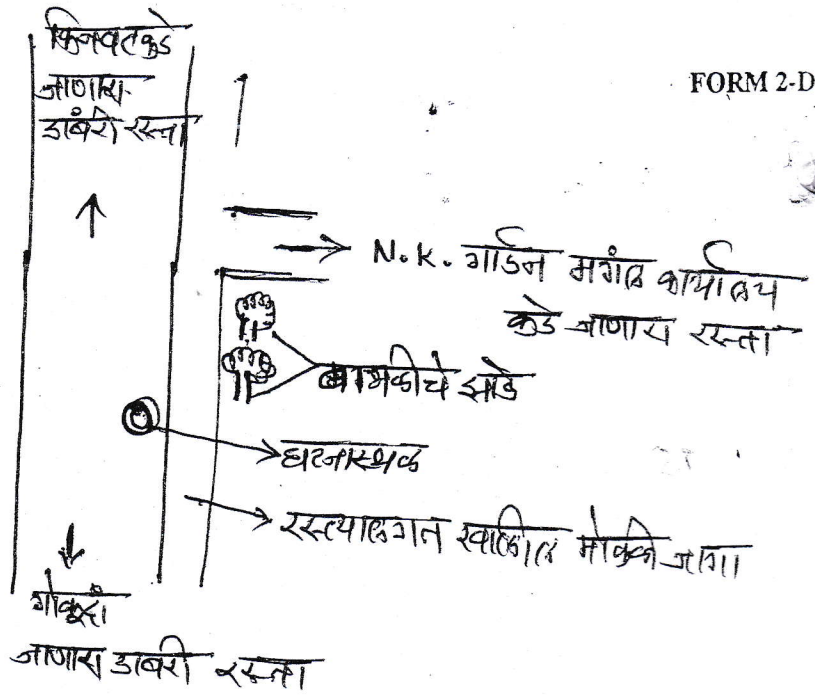 किनवटकडे
जाणारा
डांबरी रस्ता
FORM 2-D
N.K. गार्डन मगंल कार्यालय
कडे जाणारा रस्ता
बाभळीचे झाडे
घटनास्थळ
रस्त्यालगत खालील मोकळी जागा
गोकुंदा
जाणारा डाबरी रस्ता